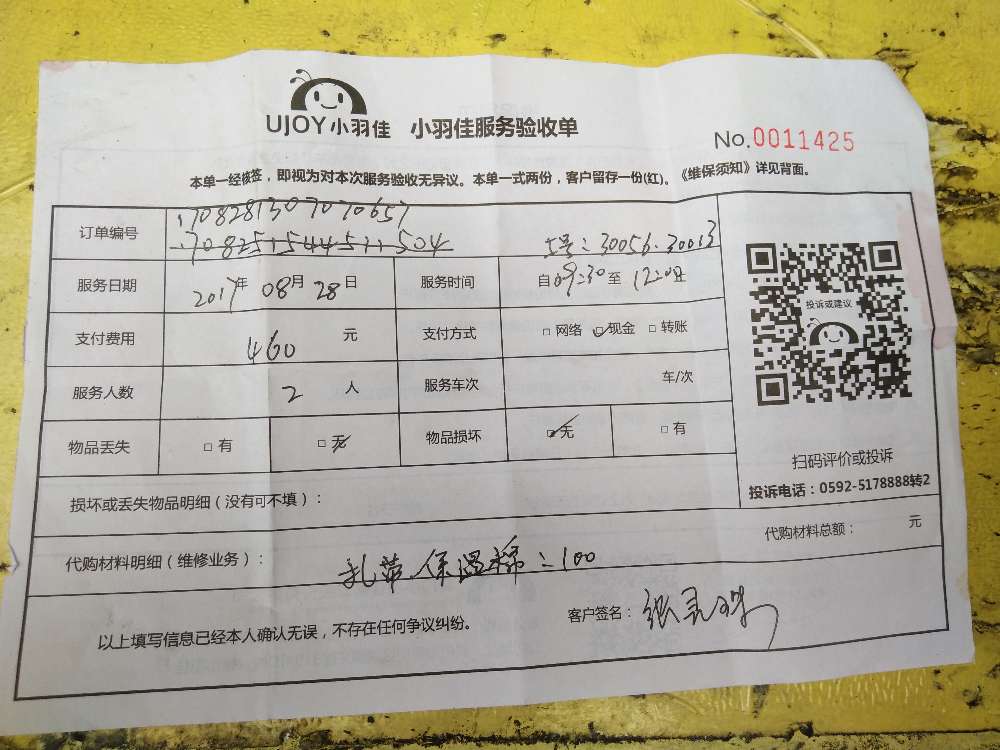 UJOY小羽佳 小羽佳服务验收单
No.0011425
本单一经核签，即视为对本次服务验收无异议。本单一式两份，客户留存一份(红)。《维保须知》详见背面。
订单编号 170828130707065 7
170825154451504 工号：30056.30013
服务日期 2017年 08月 28日 服务时间 自09:30至12:00止
支付费用 460 元 支付方式 □网络 ☑现金 □转账
投诉或建议
服务人数 2 人 服务车次 车/次
物品丢失 □有 □无 物品损坏 □无 □有
扫码评价或投诉
投诉电话：0592-5178888转2
损坏或丢失物品明细（没有可不填）：
代购材料明细（维修业务）： 扎带.保温棉：100 代购材料总额： 元
以上填写信息已经本人确认无误，不存在任何争议纠纷。 客户签名：